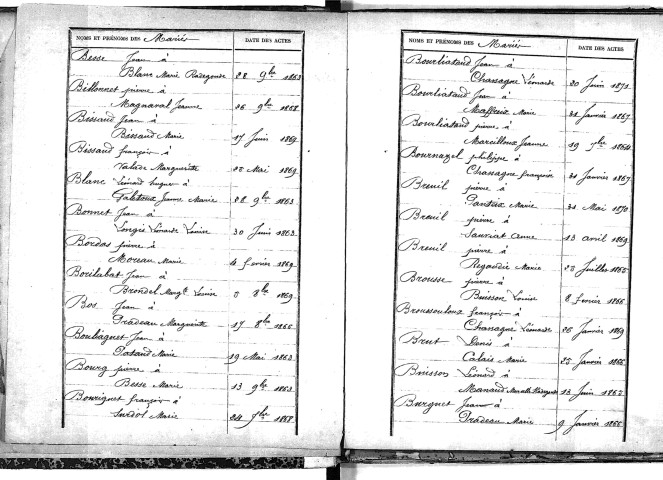 NOMS ET PRÉNOMS DES Mariés DATE DES ACTES
Besse Jean à
Blanc Marie Radegonde 28 9bre 1863
Billonnet pierre à
Magnaval Jeanne 26 9bre 1868
Bissaud Jean à
Bissaud Marie 17 Juin 1869
Bissaud françois à
Valade Marguerite 22 Mai 1869
Blanc Léonard à
Jeanne Marie 28 9bre 1863
Bonnet Jean à
Longis Léonarde Louise 30 Juin 1863
Bordas pierre à
Moreau Marie 4 fevrier 1869
Jean à
Brondel Louise 1869
Bos Jean à
Pradeau Marguerite 17 8bre 1866
Boubaguet Jean à
Marie 19 Mai 1863
Bourg pierre à
Besse Marie 13 9bre 1863
Bouriquet françois à
Surdol Marie 24 1868
NOMS ET PRÉNOMS DES Mariés DATE DES ACTES
Bourliataud Jean à
Chassagne Léonarde 20 Juin 1871
Bourliataud Jean à
Maffeux Marie 31 Janvier 1867
Bourliataud pierre à
Marcilloux Jeanne 19
Bournazel philippe à
Chassagne françoise 31 Janvier 1867
Breuil pierre à
Marie 31 Mai 1870
Breuil pierre à
Sauriat Anne 13 avril 1869
Breuil pierre à
Regaudie Marie 23 Juillet 1866
Brousse pierre à
Buisson Louise 8 fevrier 1866
Broussouloux françois à
Chassagne Léonarde 26 Janvier 1869
Brut Denis à
Calais Marie 25 Janvier 1866
Buisson Léonard à
Manaud 13 Juin 1863
Burguet Jean à
Pradeau Marie 9 Janvier 1866